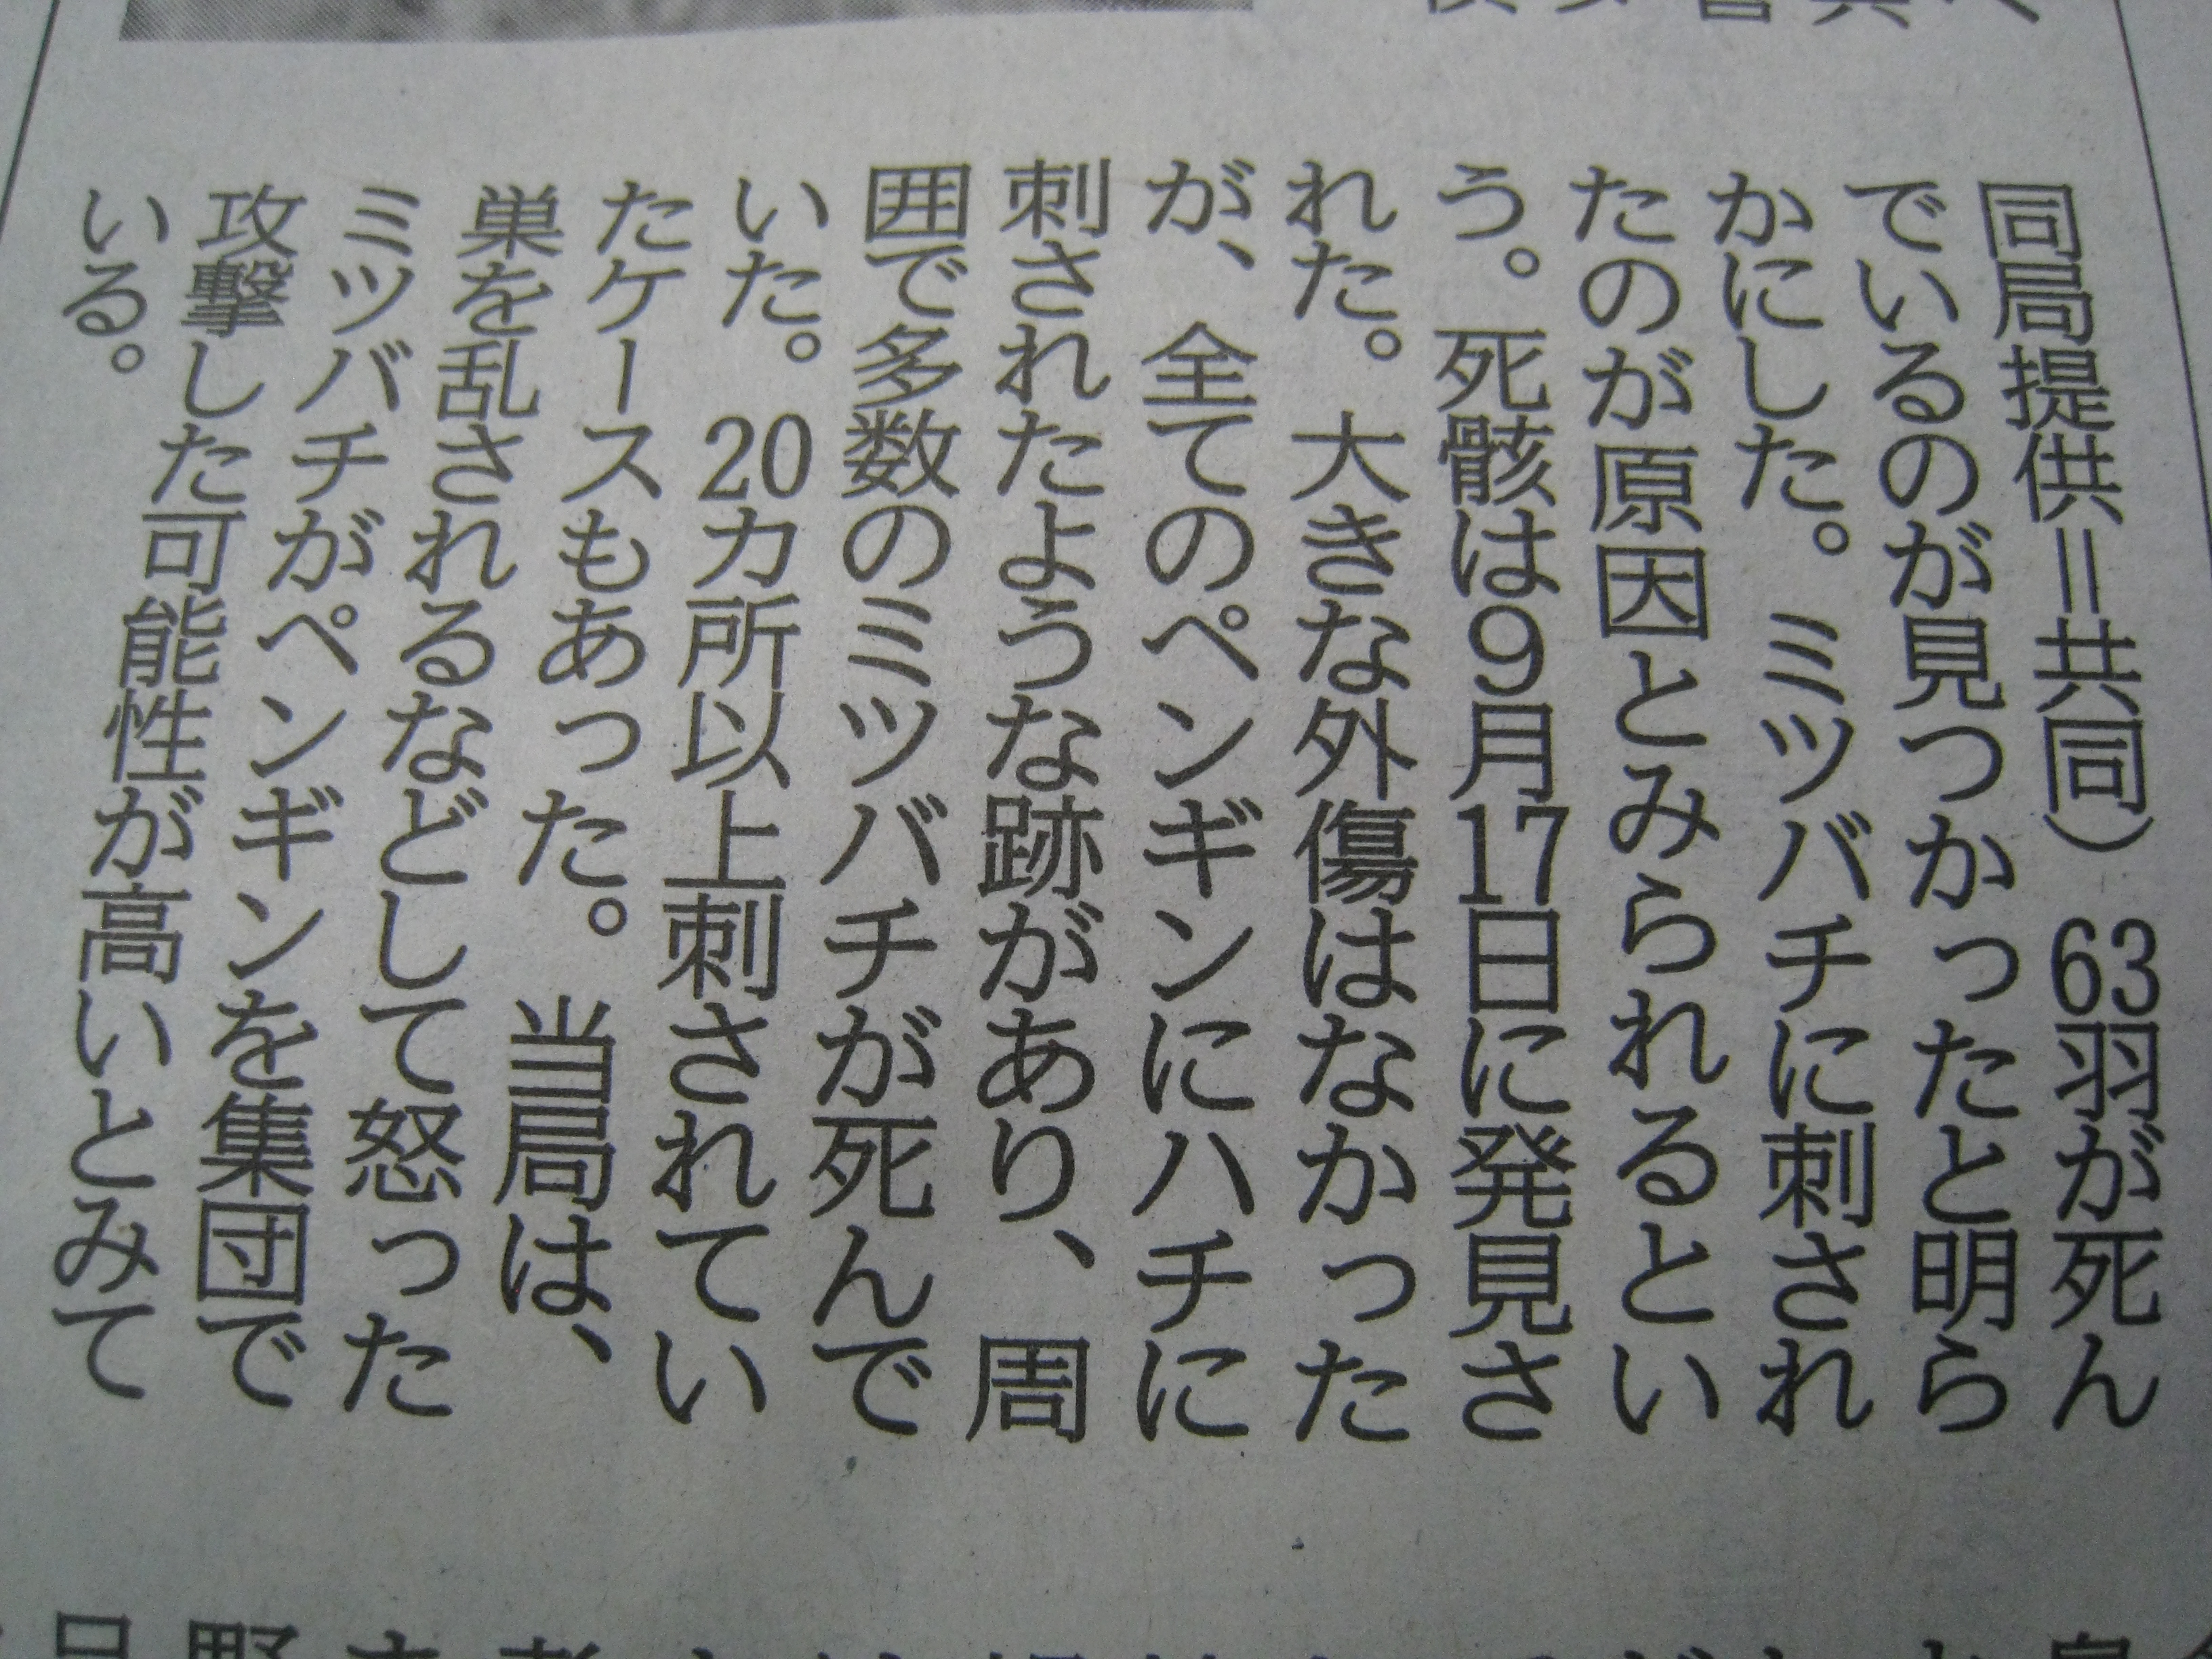 同局提供＝共同）63羽が死ん
でいるのが見つかったと明ら
かにした。ミツバチに刺され
たのが原因とみられるとい
う。死骸は9月17日に発見さ
れた。大きな外傷はなかった
が、全てのペンギンにハチに
刺されたような跡があり、周
囲で多数のミツバチが死んで
いた。20カ所以上刺されてい
たケースもあった。当局は、
巣を乱されるなどして怒った
ミツバチがペンギンを集団で
攻撃した可能性が高いとみて
いる。